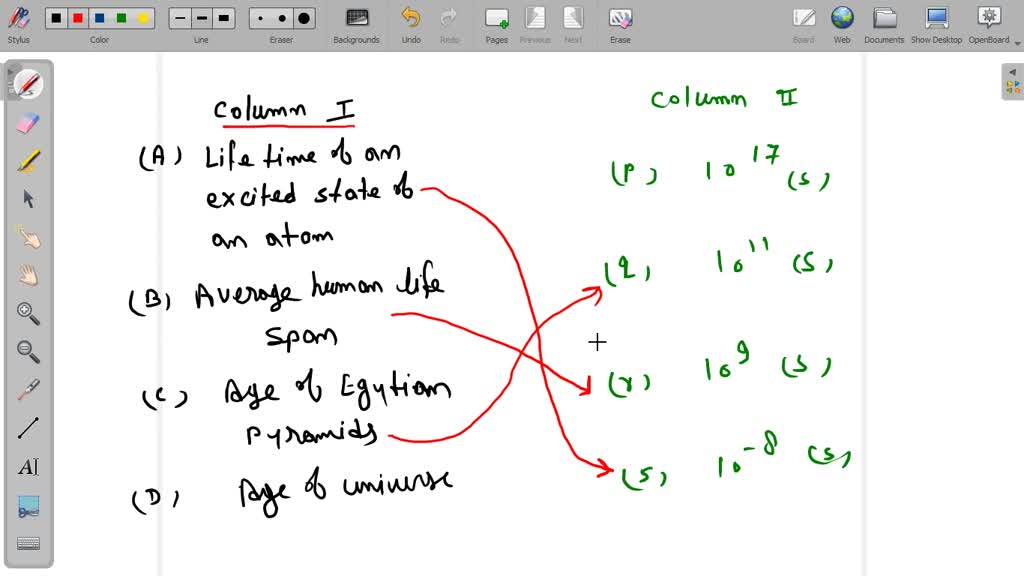 Stylus
Color
Line
Eraser
Backgrounds
Undo
Redo
Pages
Previous
Next
Erase
Board
Web
Documents
Show Desktop
OpenBoard
Column I
Column II
(A) Life time of an
excited state of
an atom
(P) 10^17 (s)
(B) Average human life
span
(q) 10^11 (s)
(C) Age of Egytian
Pyramids
(r) 10^9 (s)
(D) Age of universe
(s) 10^-8 (s)